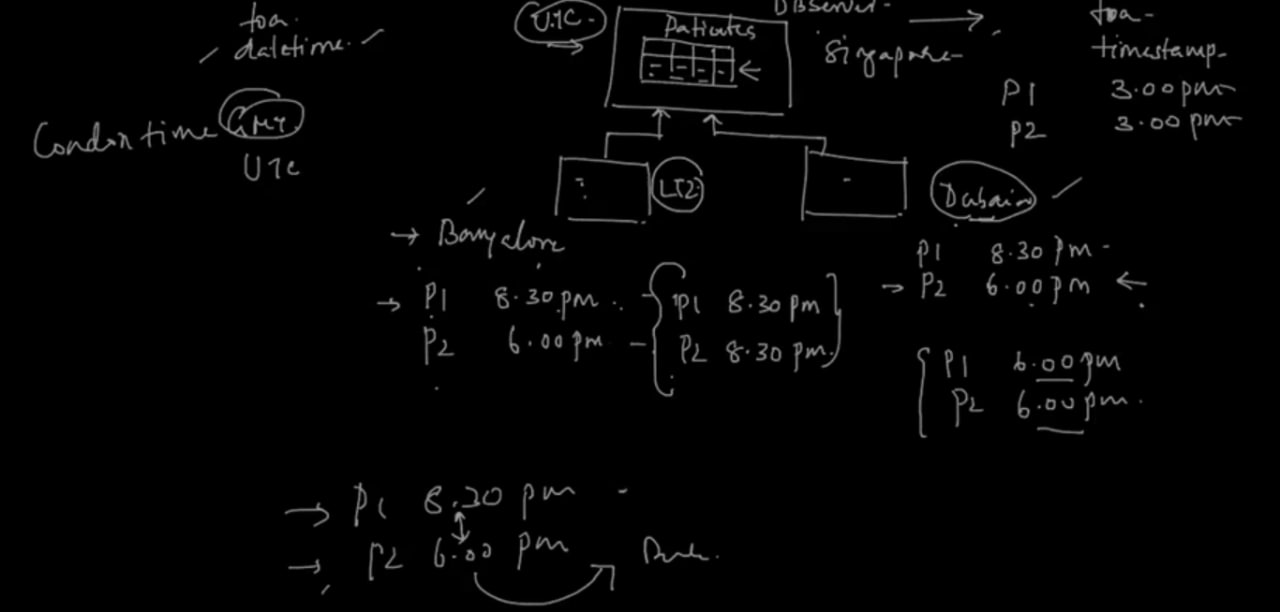 toa.
datetime.
London time GMT
UTC
UTC.
Patients
Singapore
toa-
timestamp-
P1 3.00 pm
P2 3.00 pm
LTZ
→ Bangalore
→ P1 8.30 pm
P2 6.00 pm
P1 8.30 pm
P2 8.30 pm.
P1 8.30 pm
→ P2 6.00 pm ←
P1 6.00 pm
P2 6.00 pm.
→ P1 8.30 pm
→ P2 6.00 pm